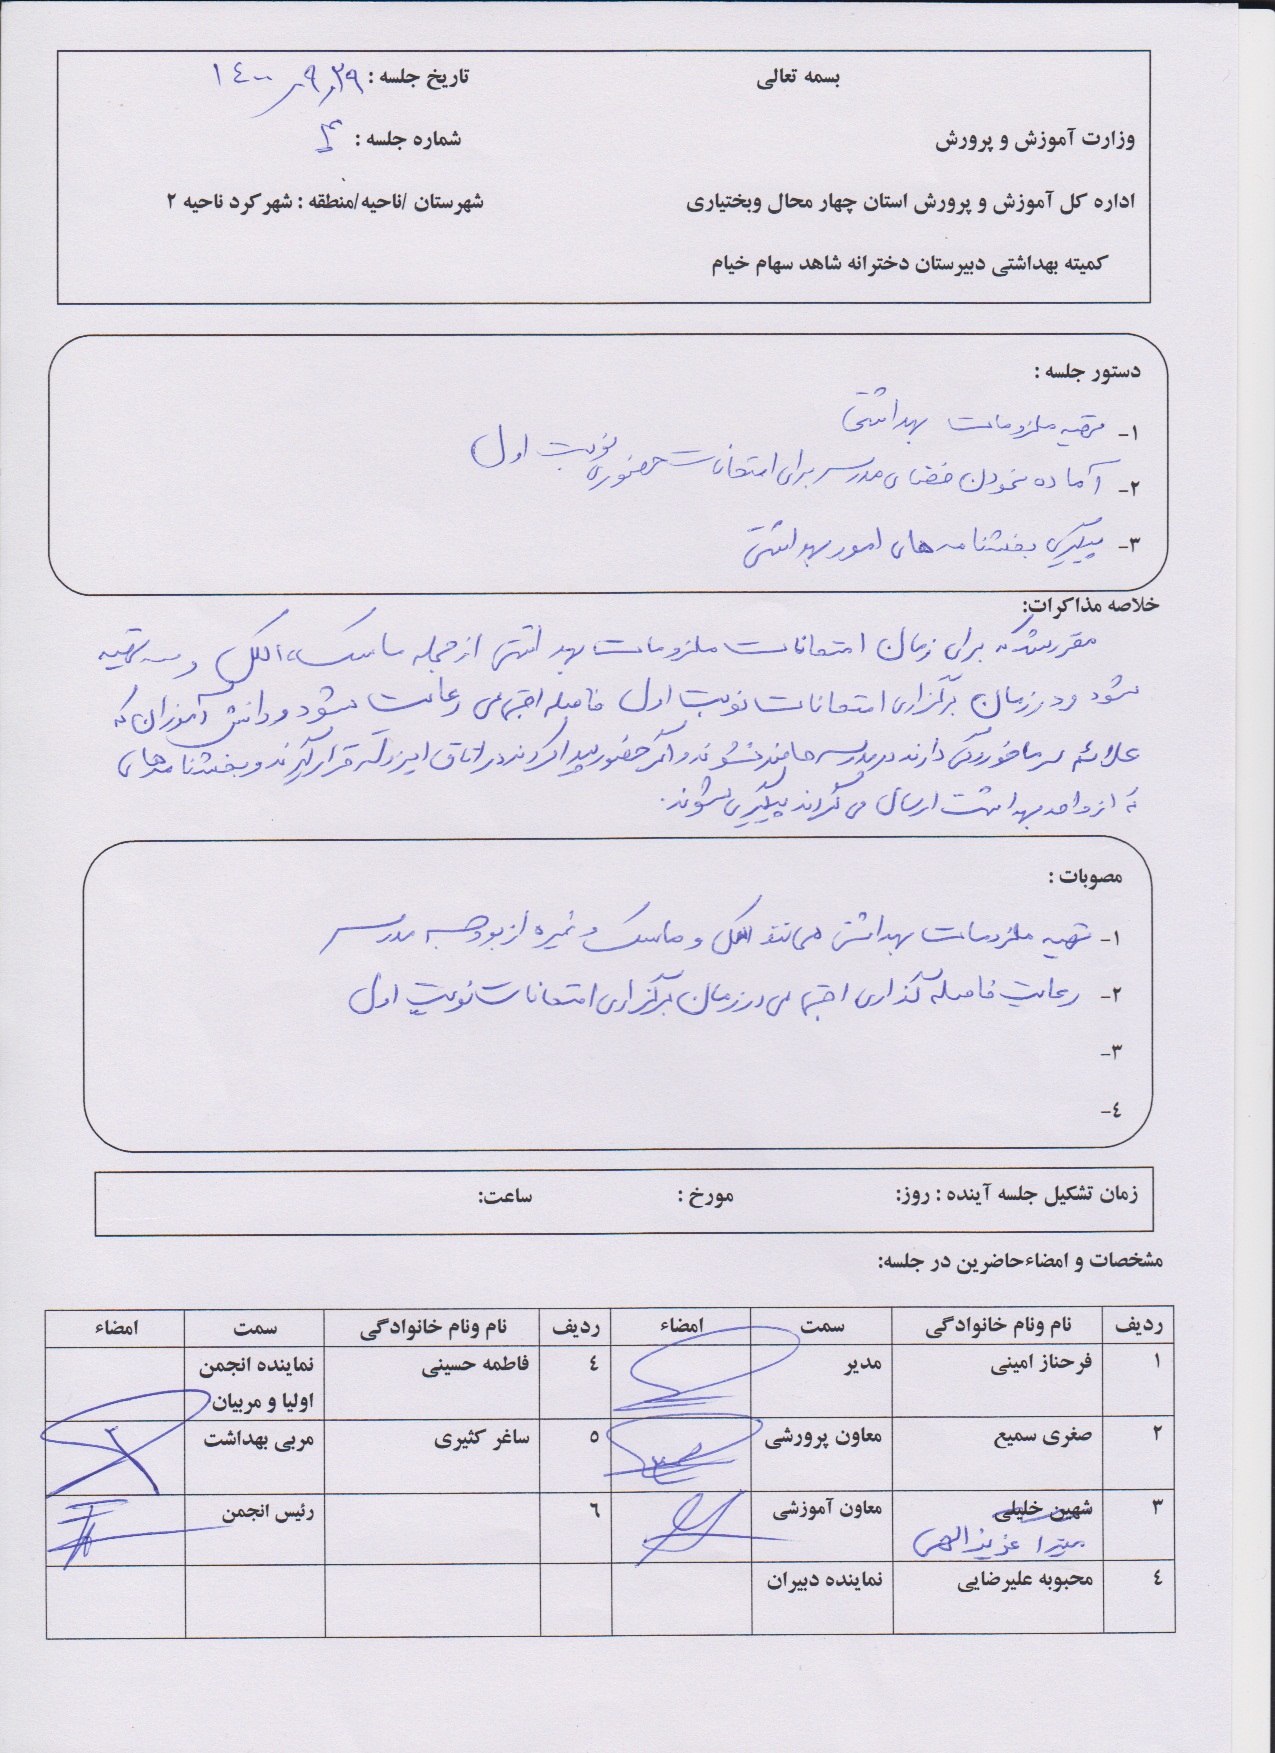 بسمه تعالی
تاریخ جلسه : ۱۴۰۰ر۹ر۲۹
وزارت آموزش و پرورش
شماره جلسه : ۴
اداره کل آموزش و پرورش استان چهار محال وبختیاری
شهرستان /ناحیه/منطقه : شهرکرد ناحیه ۲
کمیته بهداشتی دبیرستان دخترانه شاهد سهام خیام
دستور جلسه :
۱- تهیه ملزومات بهداشتی
۲- آماده نمودن فضای مدرسه برای امتحانات حضوری نوبت اول
۳- پیگیری بخشنامه های امور بهداشتی
خلاصه مذاکرات:
مقرر شد که برای زمان امتحانات ملزومات بهداشتی از جمله ماسک، الکل و ... تهیه
شود و در زمان برگزاری امتحانات نوبت اول فاصله اجتماعی رعایت شود و دانش آموزان که
علائم سرماخوردگی دارند در مدرسه حاضر نشوند و اگر حضور پیدا کردند در اتاق ایزوله قرار گیرند و بخشنامه های
که از واحد بهداشت ارسال می گردند پیگیری شوند.
مصوبات :
۱- تهیه ملزومات بهداشتی همانند الکل و ماسک و غیره از بودجه مدرسه
۲- رعایت فاصله گذاری اجتماعی در زمان برگزاری امتحانات نوبت اول
۳-
٤-
زمان تشکیل جلسه آینده : روز: مورخ : ساعت:
مشخصات و امضاءحاضرین در جلسه:
ردیف نام ونام خانوادگی سمت امضاء ردیف نام ونام خانوادگی سمت امضاء
۱ فرحناز امینی مدیر ٤ فاطمه حسینی نماینده انجمن
اولیا و مربیان
۲ صغری سمیع معاون پرورشی ٥ ساغر کثیری مربی بهداشت
۳ شهین خلیلی معاون آموزشی ٦ رئیس انجمن
میترا عزیزالهی
٤ محبوبه علیرضایی نماینده دبیران